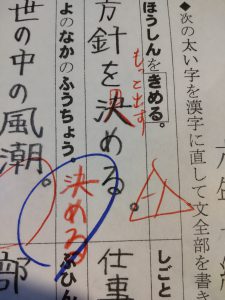 ◆次の太い字を漢字に直して文全部を書き
しごと
仕事
ほうしんをきめる。
もっと出す
△-1
方針を決める。
決める
ぶひん
部
よのなかのふうちょう。
世の中の風潮。